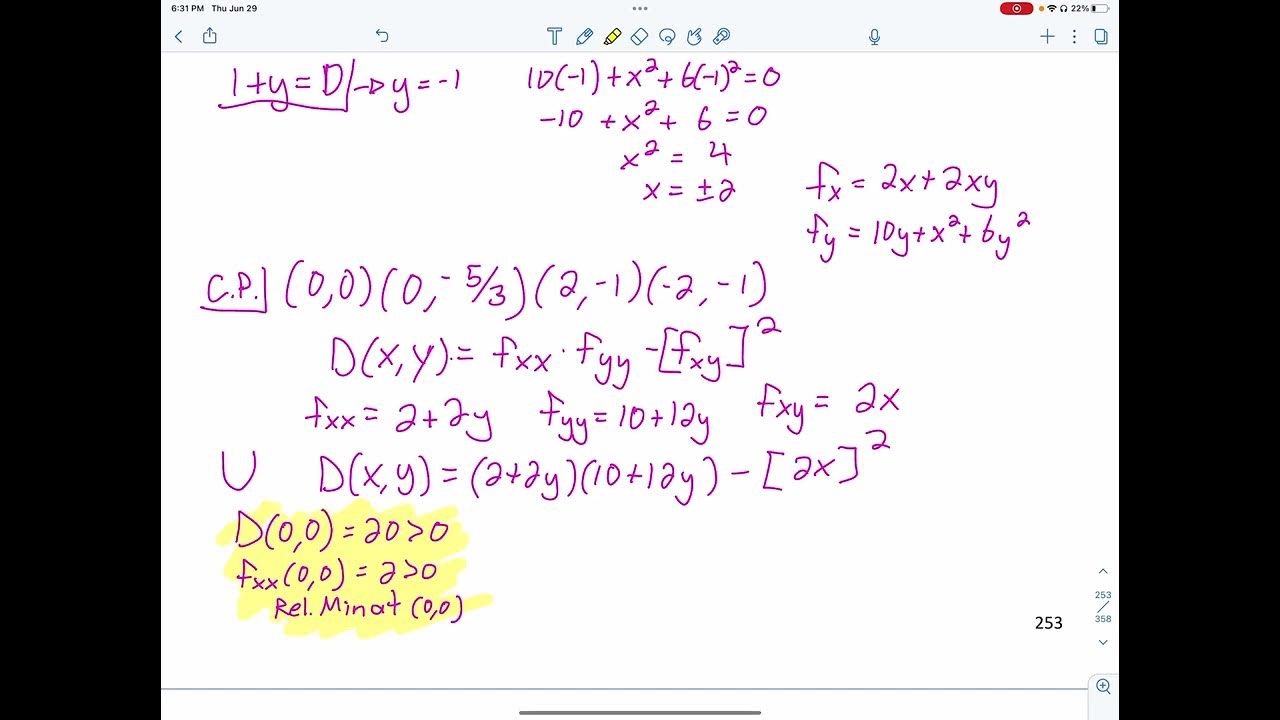 6:31 PM Thu Jun 29
22%
1+y=0 → y=-1
10(-1)+x²+6(-1)²=0
-10 +x²+ 6 =0
x² = 4
x = ±2
fx = 2x+2xy
fy = 10y+x²+6y²
C.P. (0,0)(0,-5/3)(2,-1)(-2,-1)
D(x,y) = fxx · fyy -[fxy]²
fxx = 2+2y fyy = 10+12y fxy = 2x
U D(x,y) = (2+2y)(10+12y) - [2x]²
D(0,0) = 20>0
fxx(0,0) = 2>0
Rel. Min at (0,0)
253
358
253